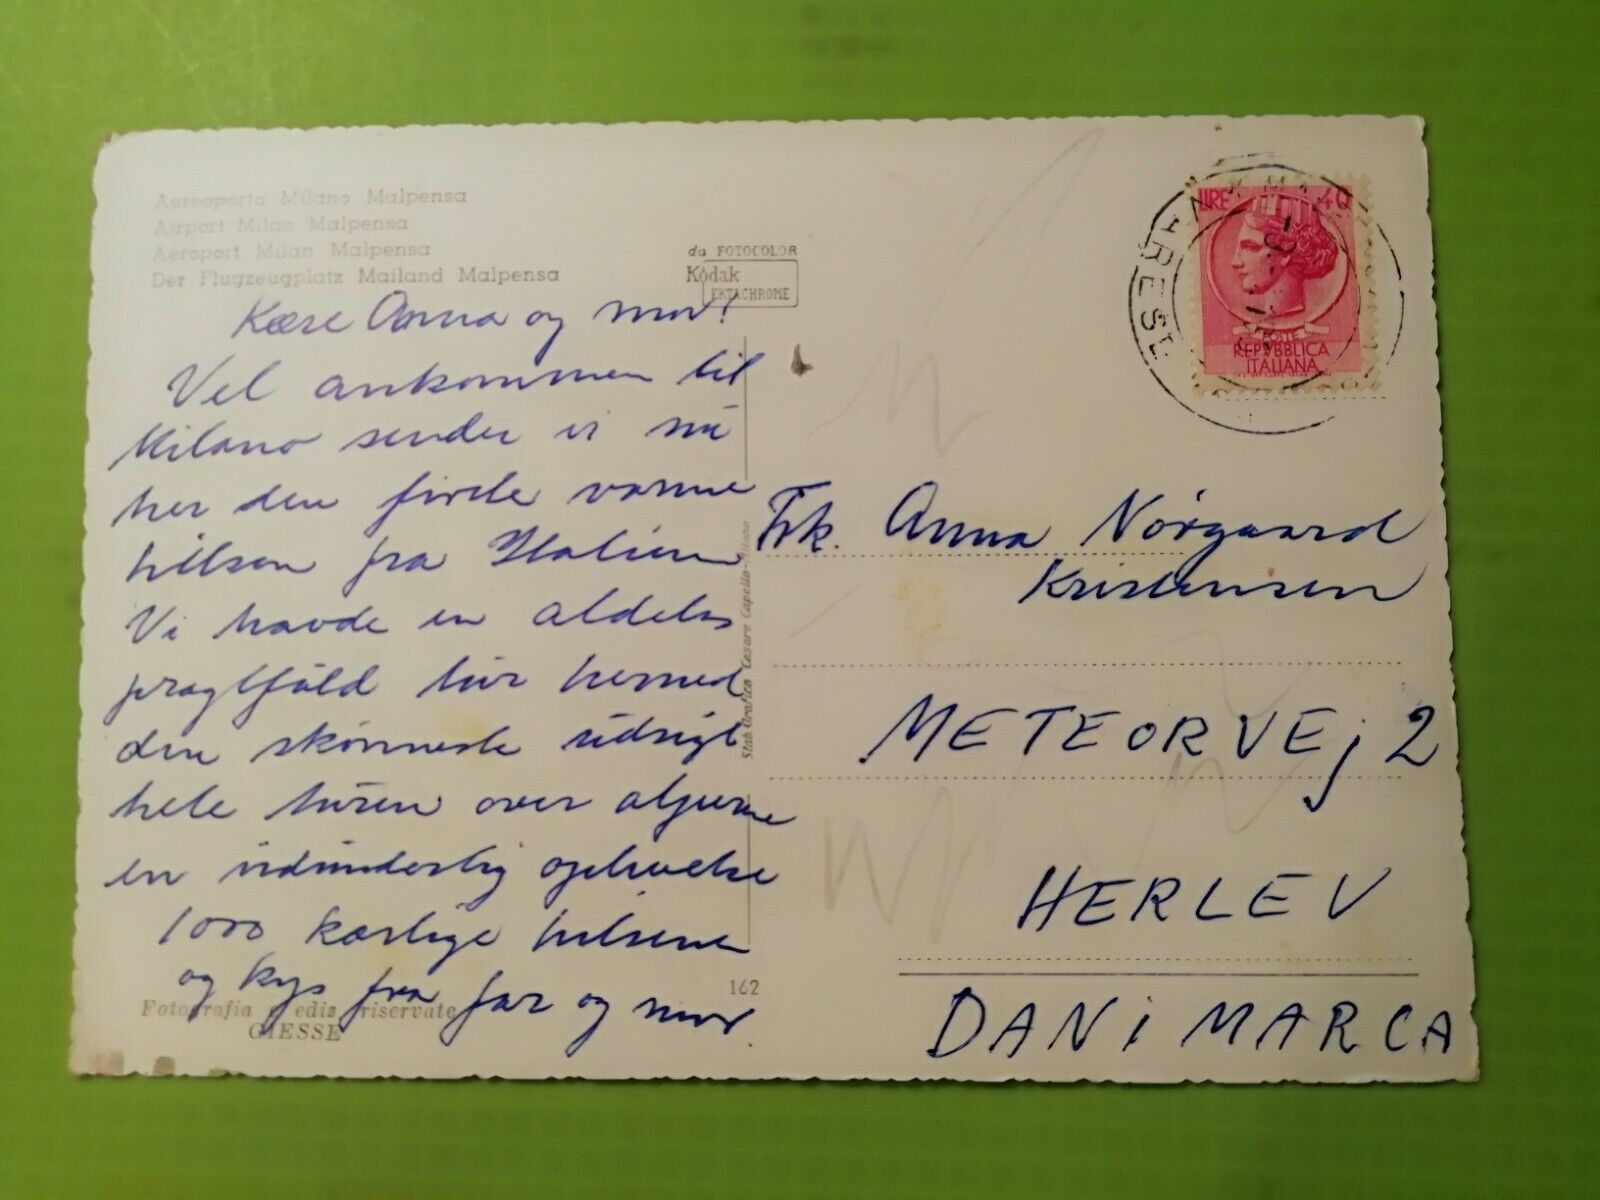 Aereoporto Milano Malpensa
Airport Milan Malpensa
Aéroport Milan Malpensa
Der Flugzeugplatz Mailand Malpensa
da FOTOCOLOR
Kodak
EKTACHROME
Kære Anna og mor!
Vel ankommen til
Milano sender vi nu
her den første varme
hilsen fra Italien
Vi havde en aldeles
pragtfuld tur herned
den skønneste udsigt
hele turen over alperne
en vidunderlig oplevelse
1000 kærlige hilsener
og kys fra far og mor.
162
Fotografia e ediz riservate
GIESSE
Stab Grafico Cesare Capello-Milano
LIRE 40
POSTE
REPVBBLICA
ITALIANA
Frk. Anna Nørgaard
Kristensen
METEORVEj 2
HERLEV
DANiMARCA